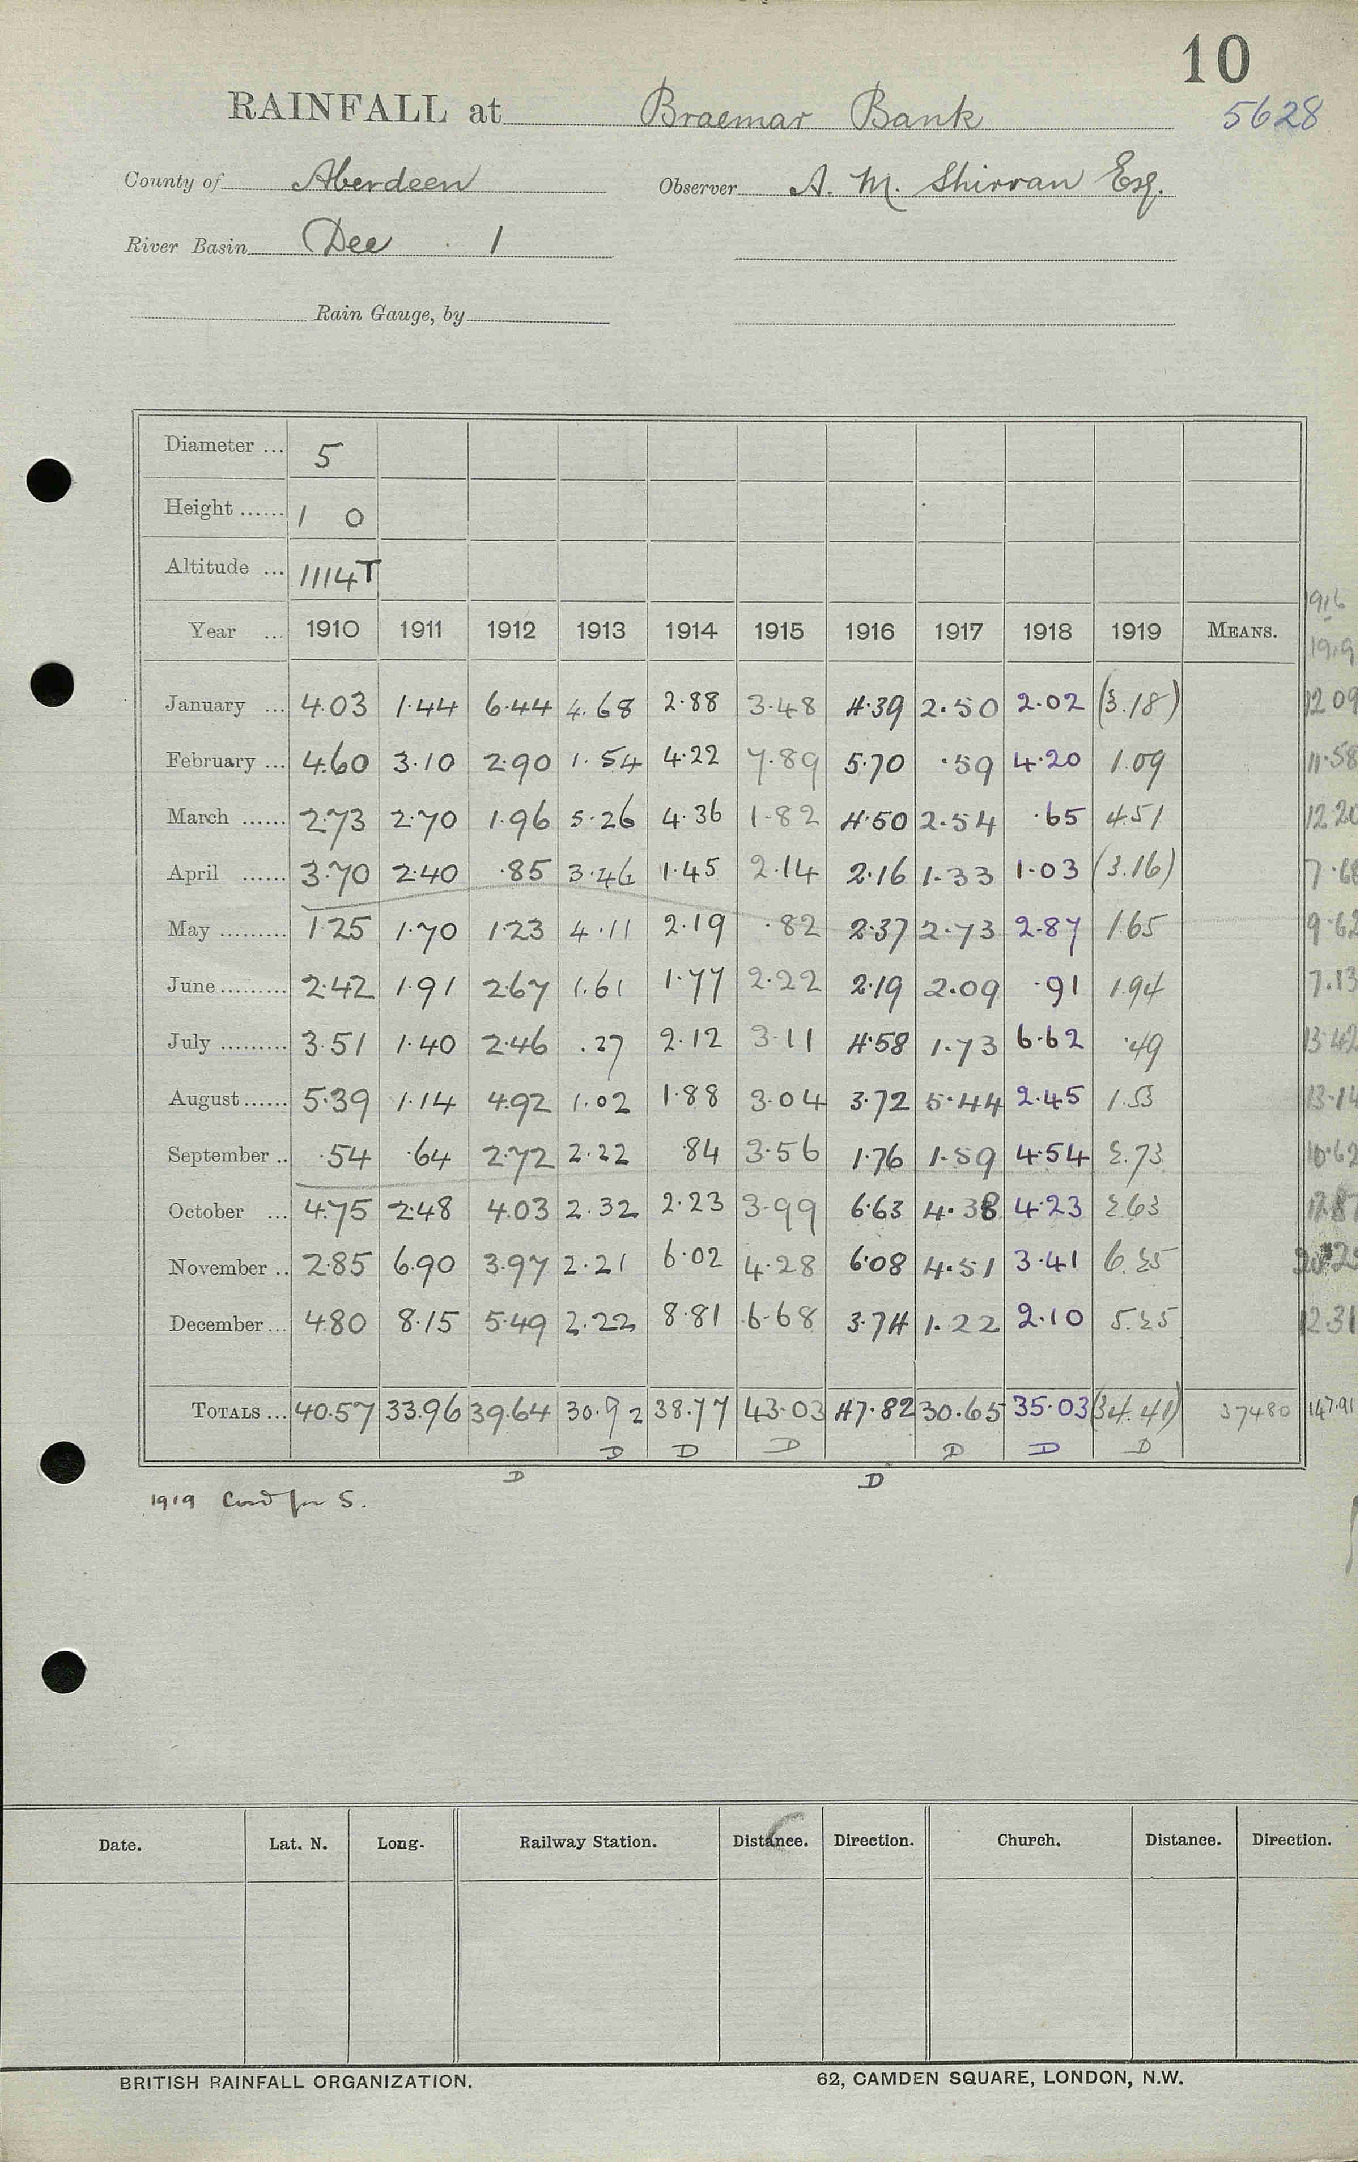 10
RAINFALL at Braemar Bank 5628
County of Aberdeen Observer A. M. Shirran Esq.
River Basin Dee 1
Rain Gauge, by
Diameter ... 5
Height ...... 1 0
Altitude ... 1114T
1916
Year ... 1910 1911 1912 1913 1914 1915 1916 1917 1918 1919 MEANS. 1919
January ... 4.03 1.44 6.44 4.68 2.88 3.48 4.39 2.50 2.02 (3.18) 12.09
February ... 4.60 3.10 2.90 1.54 4.22 7.89 5.70 .59 4.20 1.09 11.58
March ...... 2.73 2.70 1.96 5.26 4.36 1.82 4.50 2.54 .65 4.51 12.20
April ...... 3.70 2.40 .85 3.46 1.45 2.14 2.16 1.33 1.03 (3.16) 7.68
May ......... 1.25 1.70 1.23 4.11 2.19 .82 2.37 2.73 2.87 1.65 9.62
June ......... 2.42 1.91 2.67 1.61 1.77 2.22 2.19 2.09 .91 1.94 7.13
July ......... 3.51 1.40 2.46 .27 2.12 3.11 4.58 1.73 6.62 .49 13.42
August ...... 5.39 1.14 4.92 1.02 1.88 3.04 3.72 5.44 2.45 1.53 13.14
September .. .54 .64 2.72 2.22 .84 3.56 1.76 1.59 4.54 2.73 10.62
October ... 4.75 2.48 4.03 2.32 2.23 3.99 6.63 4.38 4.23 2.63 17.87
November .. 2.85 6.90 3.97 2.21 6.02 4.28 6.08 4.51 3.41 6.25 20.25
December ... 4.80 8.15 5.49 2.22 8.81 6.68 3.74 1.22 2.10 5.25 12.31
TOTALS ... 40.57 33.96 39.64 30.92 38.77 43.03 47.82 30.65 35.03 (34.41) 37480 147.91
D D D D D D
D D
1919 Card for S.
Date. Lat. N. Long. Railway Station. Distance. Direction. Church. Distance. Direction.
BRITISH RAINFALL ORGANIZATION. 62, CAMDEN SQUARE, LONDON, N.W.